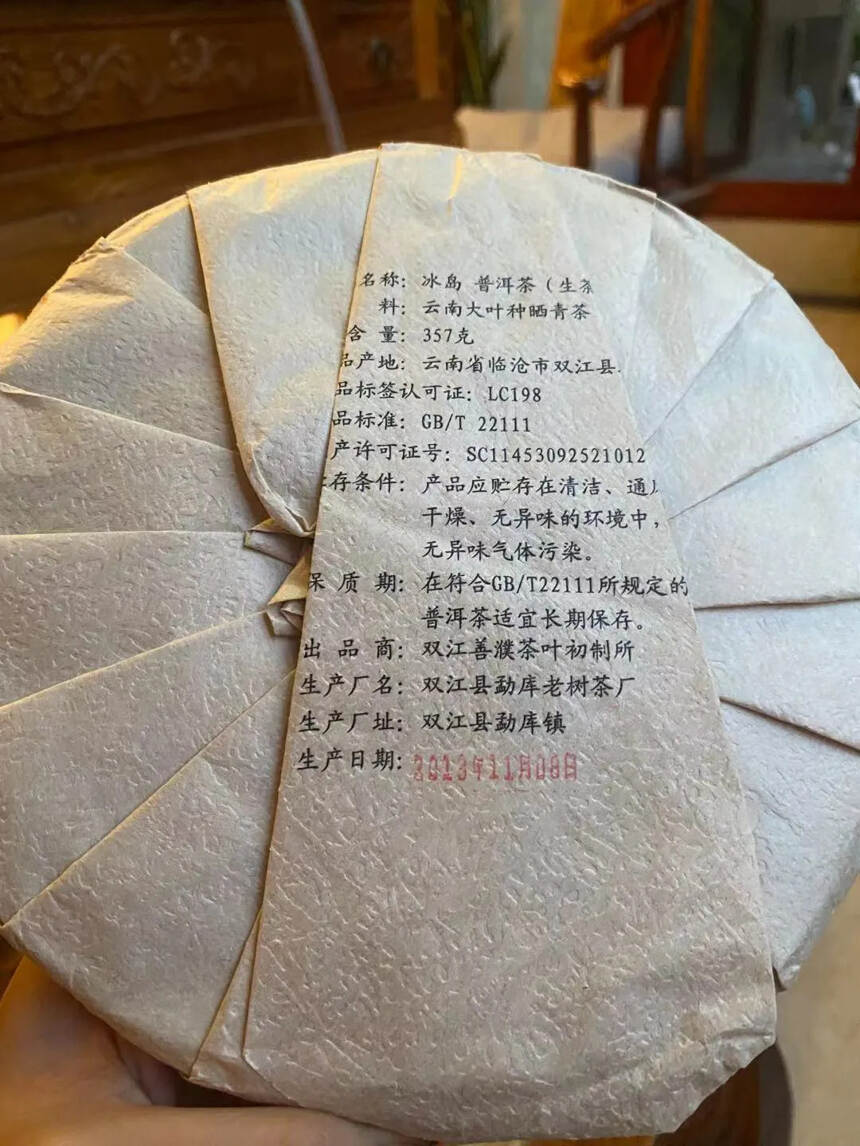 名称：冰岛 普洱茶（生茶
料：云南大叶种晒青茶
含 量：357克
品产地：云南省临沧市双江县
品标签认可证：LC198
品标准：GB/T 22111
产许可证号：SC11453092521012
存条件：产品应贮存在清洁、通
干燥、无异味的环境中，
无异味气体污染。
保 质 期：在符合GB/T22111所规定的
普洱茶适宜长期保存。
出 品 商：双江善濮茶叶初制所
生产厂名：双江县勐库老树茶厂
生产厂址：双江县勐库镇
生产日期：2013年11月08日